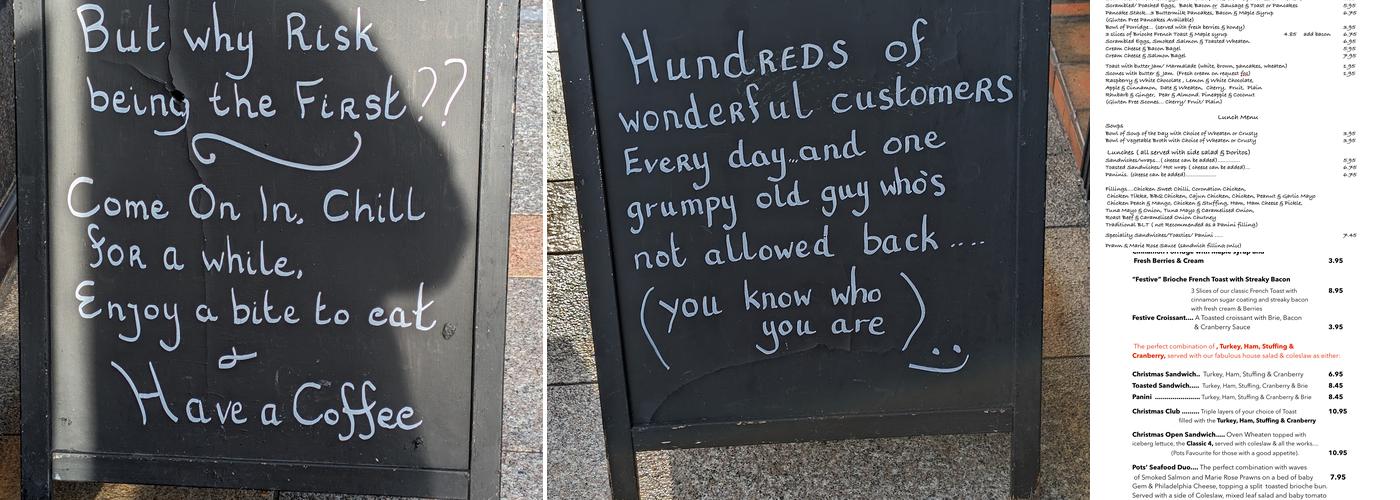 But why Risk
being the First??
Come On In, Chill
for a while,
Enjoy a bite to eat
&
Have a Coffee
HundREDS of
wonderful customers
Every day...and one
grumpy old guy who's
not allowed back ....
(you know who
you are)
Scrambled/ Poached Eggs, Back Bacon or Sausage & Toast or Pancakes 5.95
Pancake Stack...3 Buttermilk Pancakes, Bacon & Maple Syrup 6.75
(Gluten Free Pancakes Available)
Bowl of Porridge... (served with fresh berries & honey) 3.95
3 slices of Brioche French Toast & Maple syrup 4.85 add bacon 6.75
Scrambled Eggs, Smoked Salmon & Toasted Wheaten. 6.95
Cream Cheese & Bacon Bagel 5.95
Cream Cheese & Salmon Bagel 7.95
Toast with butter jam/ Marmalade (white, brown, pancakes, wheaten) 1.95
Scones with butter & jam. (Fresh cream on request fos) 1.95
Raspberry & White Chocolate , Lemon & White Chocolate,
Apple & Cinnamon, Date & Wheaten, Cherry, Fruit, Plain
Rhubarb & Ginger, Pear & Almond. Pineapple & Coconut
(Gluten Free Scones... Cherry/ Fruit/ Plain)
Lunch Menu
Soups
Bowl of Soup of the Day with Choice of Wheaten or Crusty 3.95
Bowl of Vegetable Broth with Choice of Wheaten or Crusty 3.95
Lunches ( all served with side salad & Doritos)
Sandwiches/wraps...( cheese can be added).............. 5.95
Toasted Sandwiches/ Hot wraps ( cheese can be added)... 6.75
Paninis. (cheese can be added)........................... 6.75
Fillings....Chicken Sweet Chilli, Coronation Chicken,
Chicken Tikka, BBQ Chicken, Cajun Chicken, Chicken, Peanut & Garlic Mayo
Chicken Peach & Mango, Chicken & Stuffing, Ham, Ham Cheese & Pickle,
Tuna Mayo & Onion, Tuna Mayo & Caramelised Onion,
Roast Beef & Caramelised Onion Chutney
Traditional BLT ( not Recommended as a Panini filling)
Speciality Sandwiches/Toasties/ Panini ..... 7.45
Prawn & Marie Rose Sauce (sandwich filling only)
Cinnamon Porridge with maple syrup and
Fresh Berries & Cream 3.95
"Festive" Brioche French Toast with Streaky Bacon
3 Slices of our classic French Toast with 8.95
cinnamon sugar coating and streaky bacon
with fresh cream & Berries
Festive Croissant.... A Toasted croissant with Brie, Bacon
& Cranberry Sauce 3.95
The perfect combination of , Turkey, Ham, Stuffing &
Cranberry, served with our fabulous house salad & coleslaw as either:
Christmas Sandwich.. Turkey, Ham, Stuffing & Cranberry 6.95
Toasted Sandwich..... Turkey, Ham, Stuffing, Cranberry & Brie 8.45
Panini ....................... Turkey, Ham, Stuffing & Cranberry & Brie 8.45
Christmas Club ......... Triple layers of your choice of Toast 10.95
filled with the Turkey, Ham, Stuffing & Cranberry
Christmas Open Sandwich..... Oven Wheaten topped with
iceberg lettuce, the Classic 4, served with coleslaw & all the works....
(Pots Favourite for those with a good appetite). 10.95
Pots' Seafood Duo.... The perfect combination with waves
of Smoked Salmon and Marie Rose Prawns on a bed of baby 7.95
Gem & Philadelphia Cheese, topping a split toasted brioche bun.
Served with a side of Coleslaw, mixed leaf salad and baby tomato